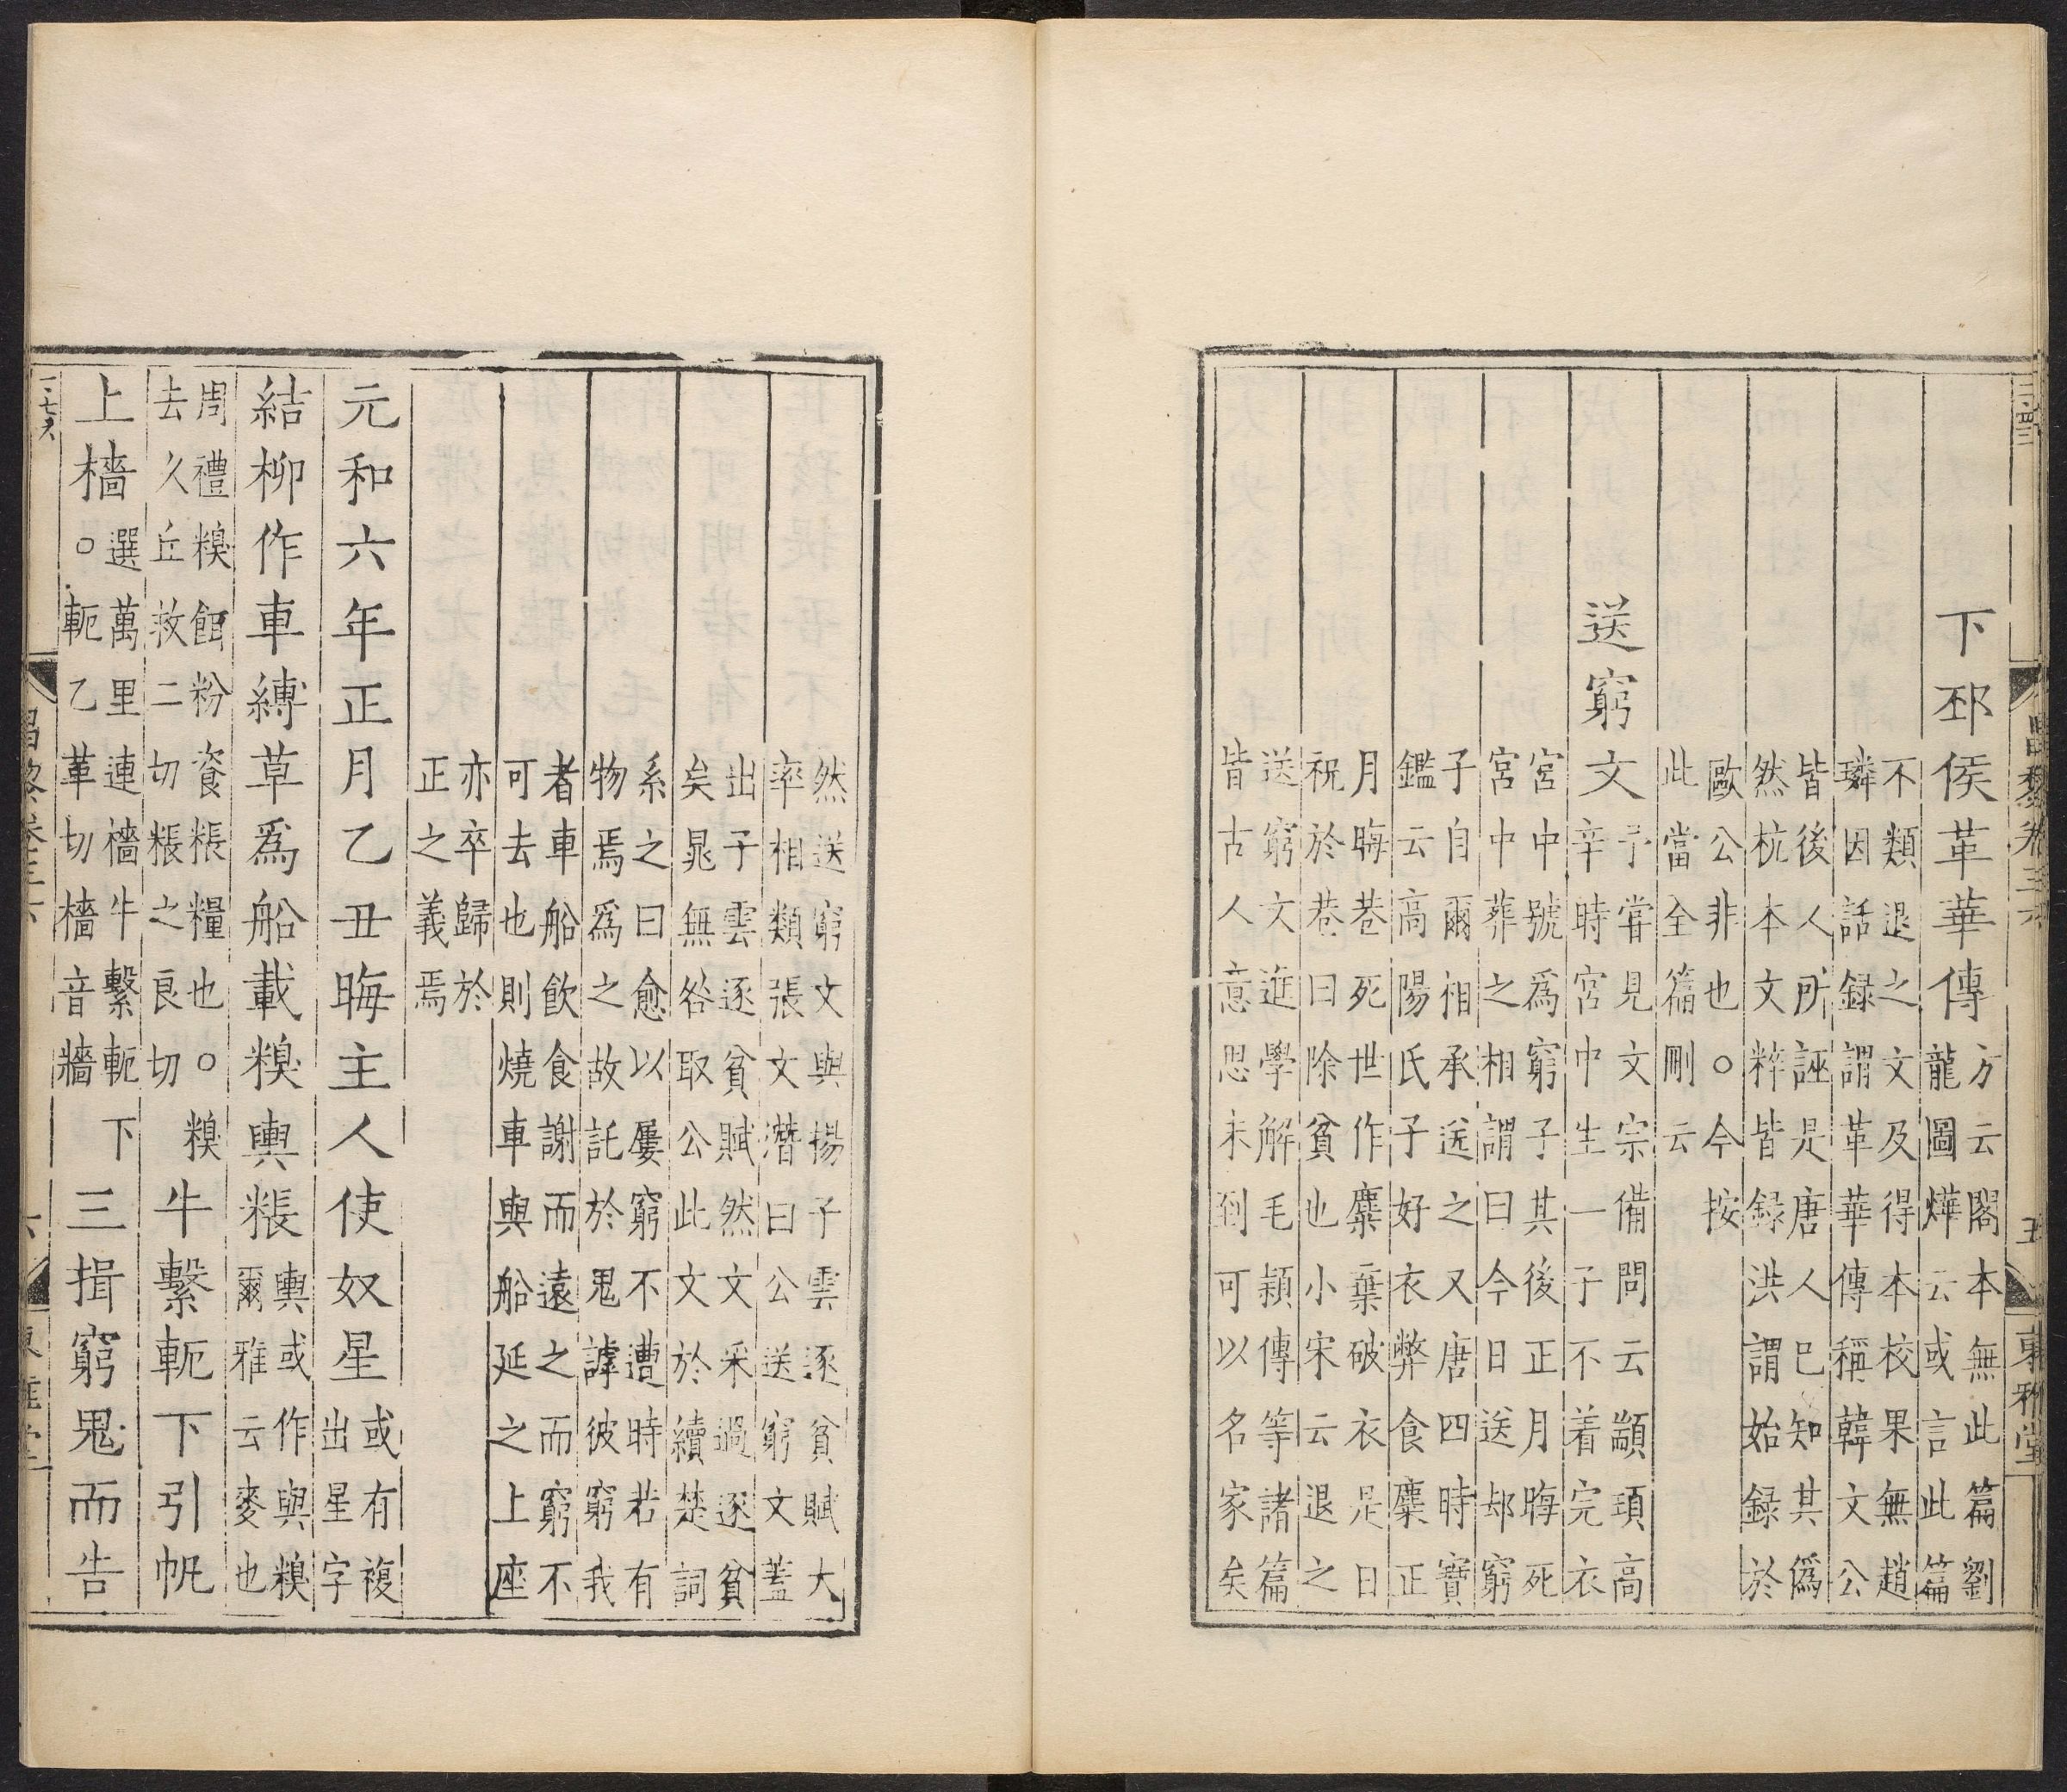 昌黎卷三十六 五 東雅堂
下邳侯革華傳
方云閣本無此篇劉
龍圖燁云或言此篇
不類退之文及得本校果無趙
璘因話録謂革華傳稱韓文公
皆後人所誣是唐人已知其僞
然杭本文粹皆録洪謂始録於
歐公非也○今按
此當全篇刪云
送窮文
予嘗見文宗備問云顓頊高
辛時宮中生一子不着完衣
宮中號爲窮子其後正月晦死
宮中葬之相謂曰今日送却窮
子自爾相承送之又唐四時寶
鑑云高陽氏子好衣弊食糜正
月晦巷死世作糜棄破衣是日
祝於巷曰除貧也小宋云退之
送窮文進學解毛穎傳等諸篇
皆古人意思未到可以名家矣
然送窮文與揚子雲逐貧賦大
率相類張文潛曰公送窮文蓋
出子雲逐貧賦然文采過逐貧
矣晁無咎取公此文於續楚詞
系之曰愈以屢窮不遭時若有
物焉爲之故託於鬼謔彼窮我
者車船飲食謝而遠之而窮不
可去也則燒車與船延之上座
亦卒歸於
正之義焉
元和六年正月乙丑晦主人使奴星
或有複
出星字
結柳作車縛草爲船載糗輿粻
輿或作與糗
爾雅云麥也
周禮糗餌粉餈粻糧也○糗
去久丘救二切粻之良切
牛繫軛下引帆
上檣
選萬里連檣牛繫軛下
○軛乙革切檣音牆
三揖窮鬼而告
昌黎卷三十六 六 東雅堂